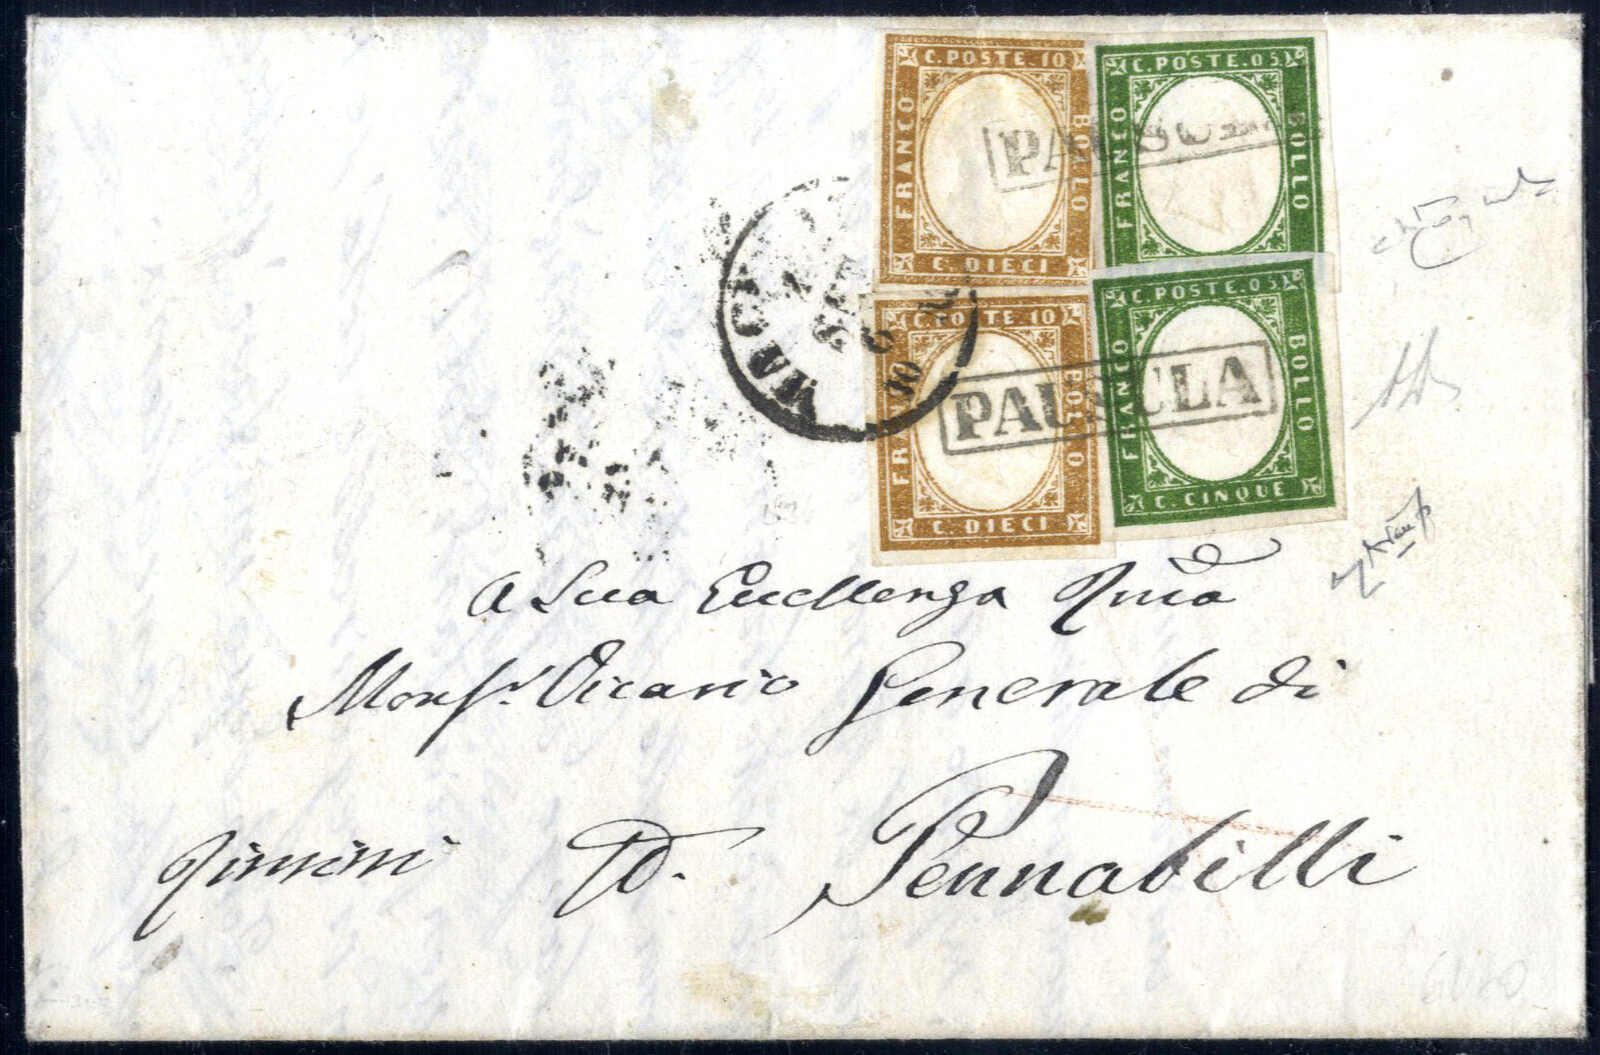 C. POSTE. 10
FRANCO
BOLLO
C. DIECI
C. POSTE. 05
FRANCO
BOLLO
C. POSTE. 10
FRANCO
BOLLO
C. DIECI
C. POSTE. 05
FRANCO
BOLLO
C. CINQUE
PAUSULA
PAUSULA
A Sua Eccellenza
Vicario Generale di
Rimini Pennabilli